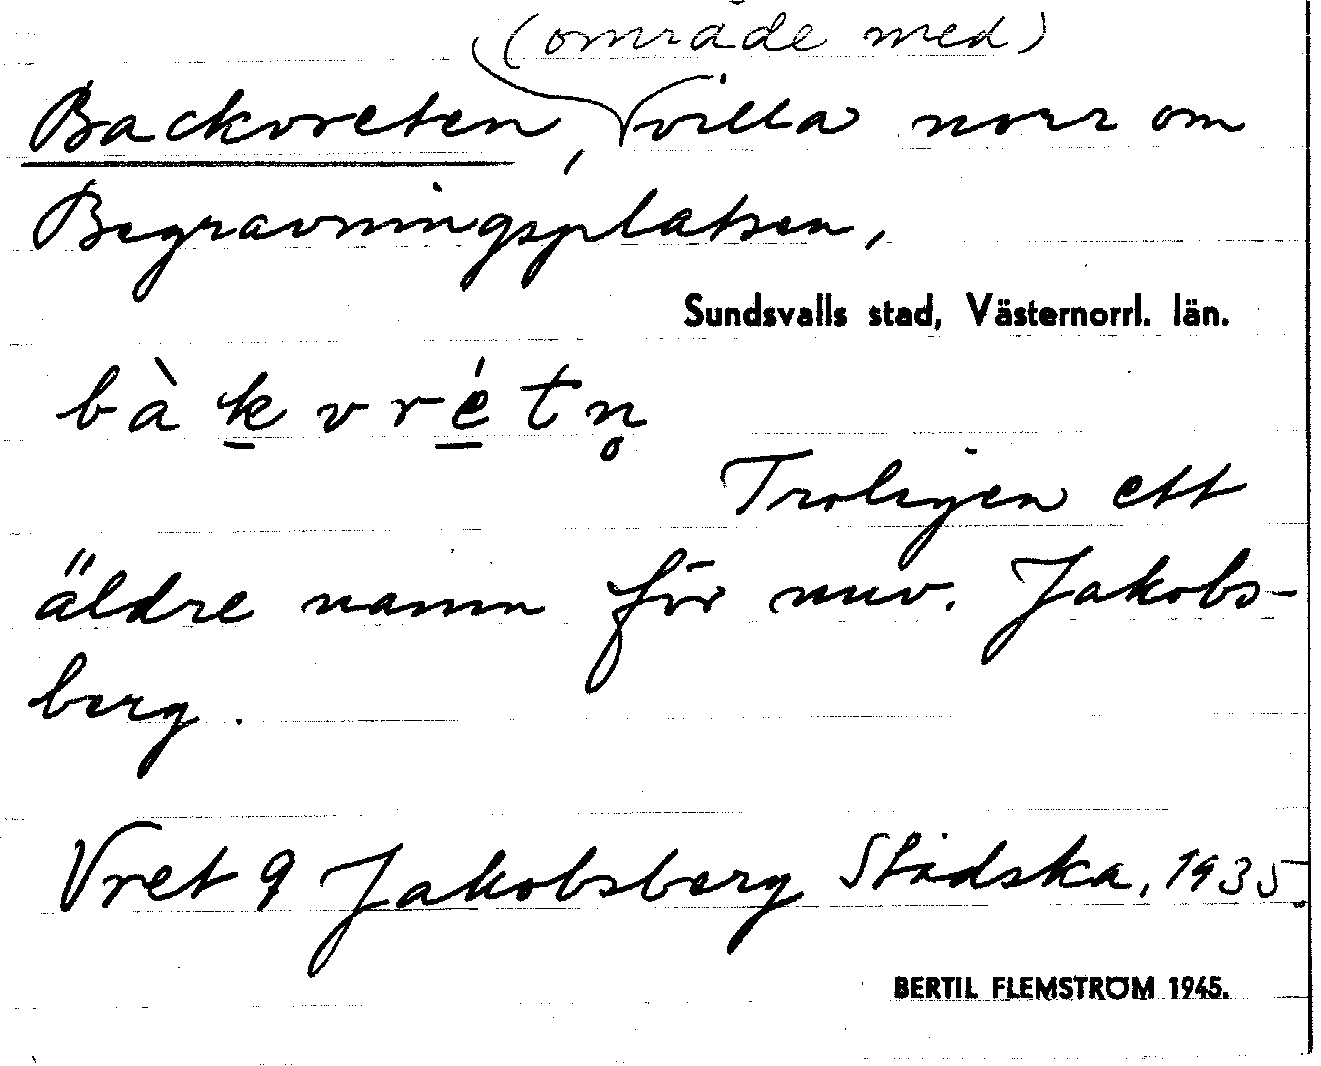 (område med)
Backvreten, villa norr om
Begravningsplatsen,
Sundsvalls stad, Västernorrl. län.
bàk̲vré̲tn̥
Troligen ett
äldre namn för nuv. Jakobs-
berg.
Vret 9 Jakobsberg Stadska, 1935.
BERTIL FLEMSTRÖM 1945.